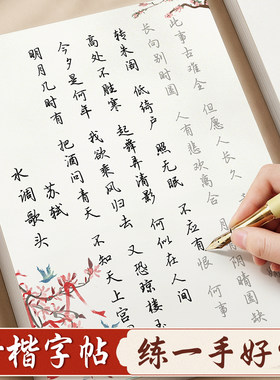 水调歌头
苏轼
明月几时有 把酒问青天 不知天上宫
今夕是何年 我欲乘风归去 又恐琼楼玉
高处不胜寒 起舞弄清影 何似在人间
转朱阁 低绮户 照无眠 不应有恨 何事
长向别时圆 人有悲欢离合 月 阴晴圆缺
此事古难全 但愿人长久
楷字帖
练一手好